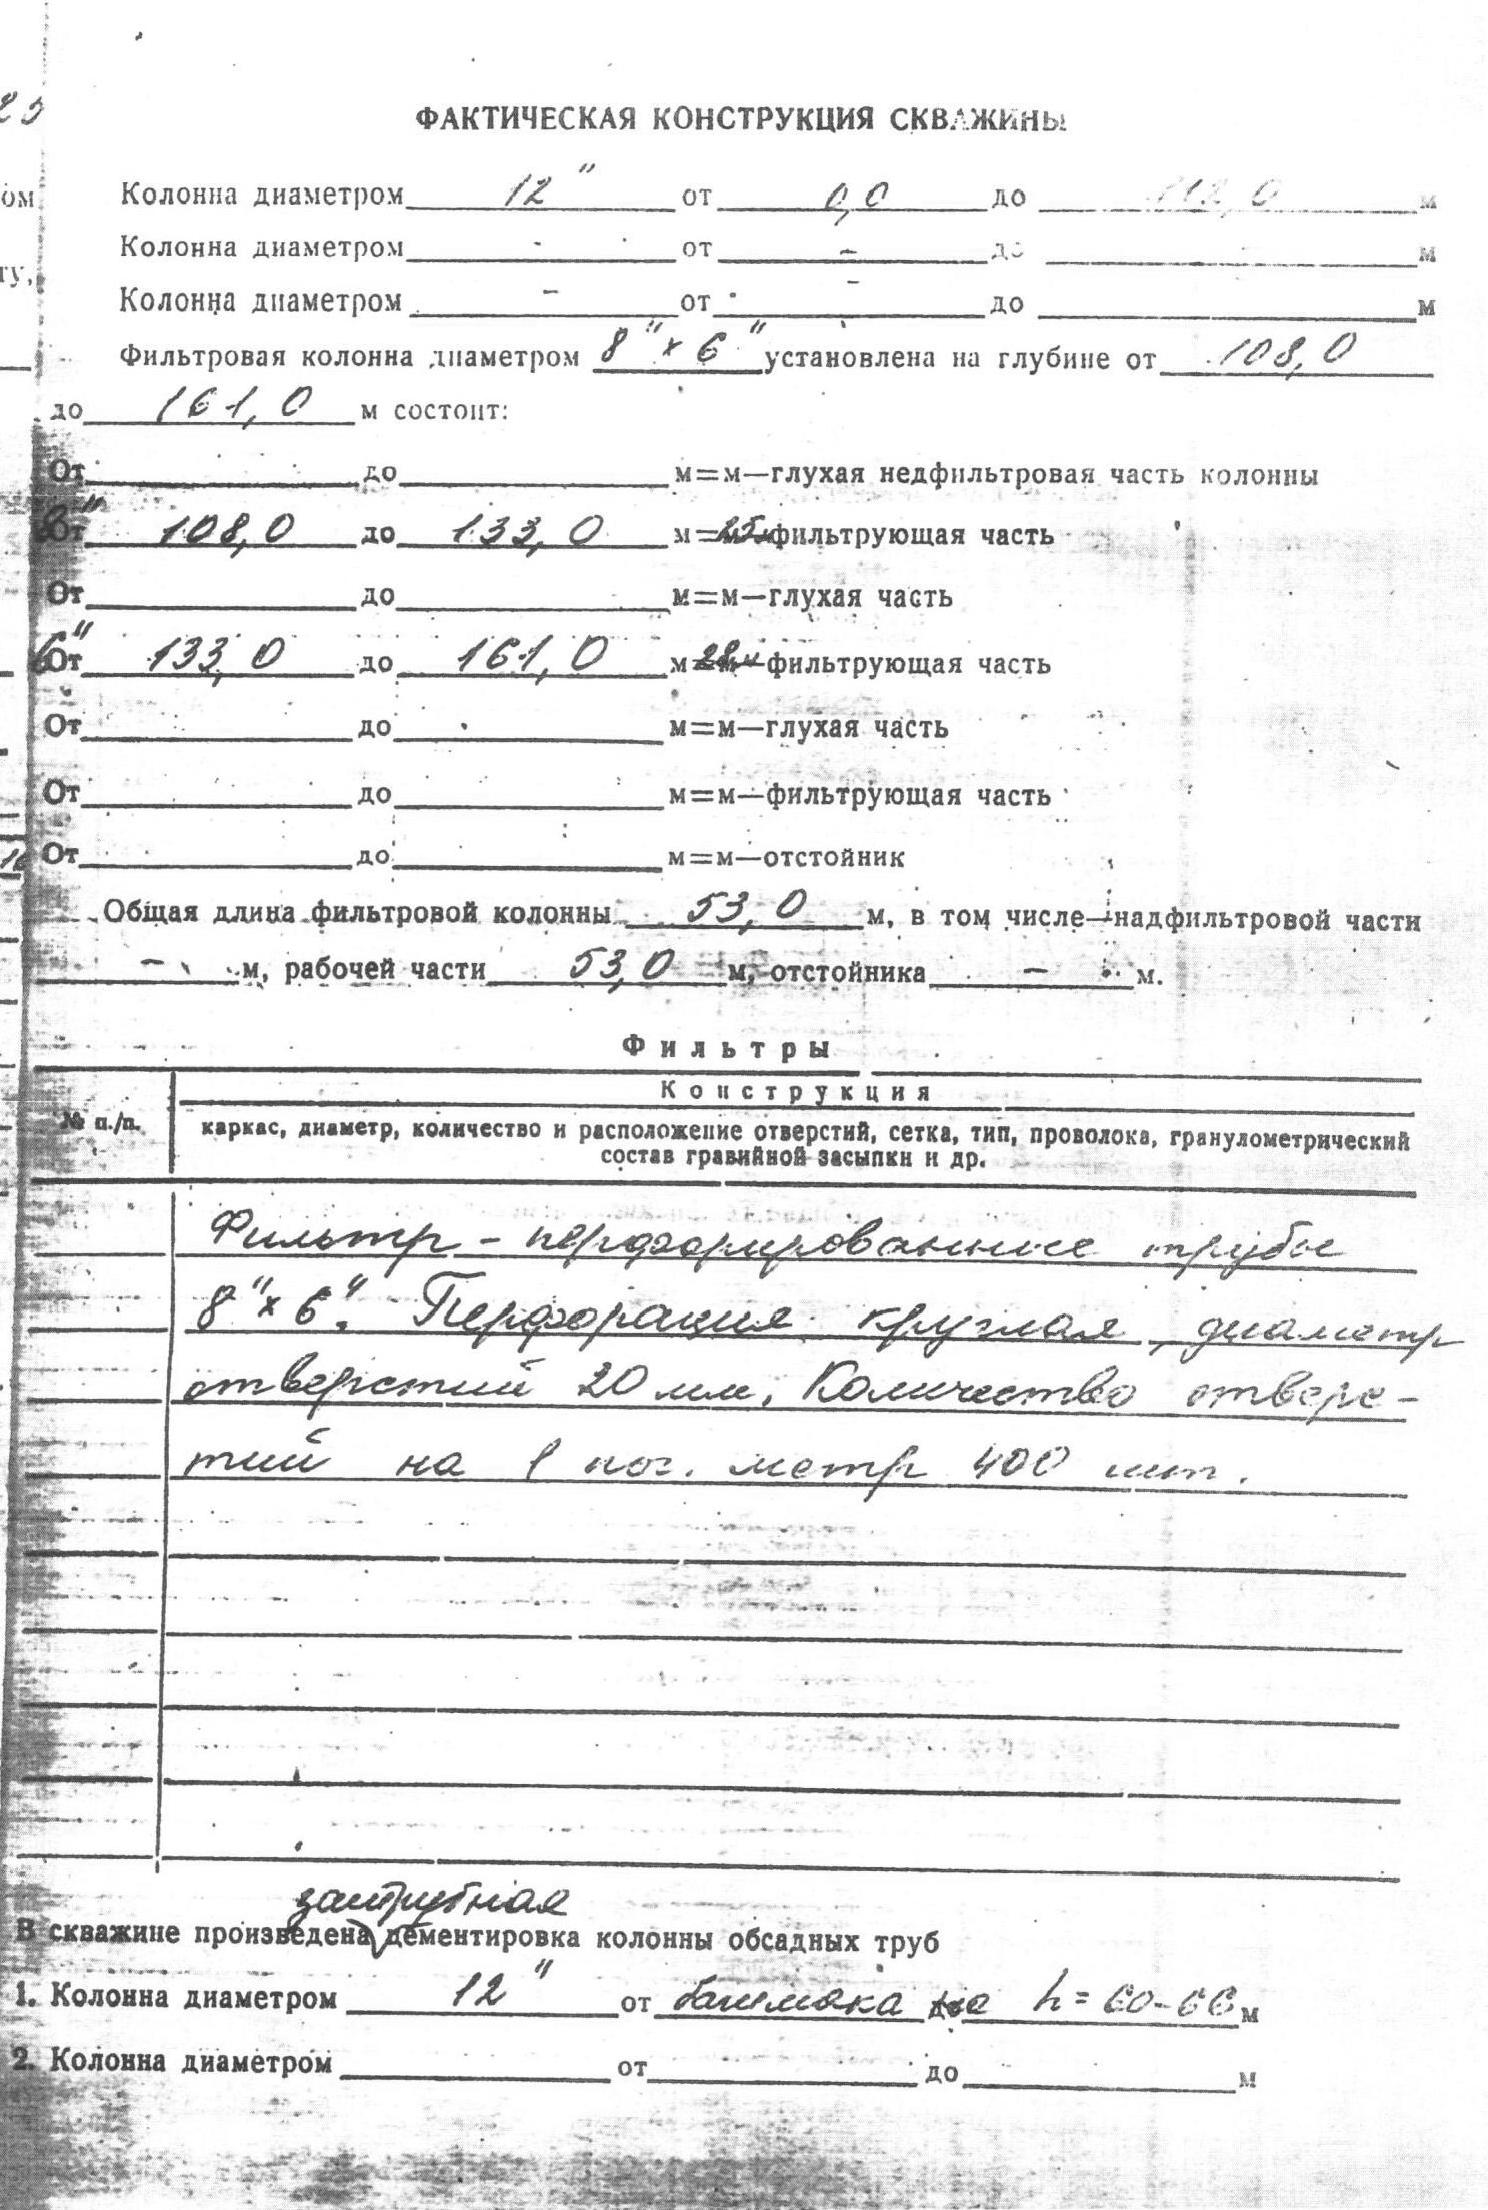 ФАКТИЧЕСКАЯ КОНСТРУКЦИЯ СКВАЖИНЫ
Колонна диаметром 12" от 0,0 до 112,0 м
Колонна диаметром - от - до м
Колонна диаметром - от - до м
Фильтровая колонна диаметром 8"×6" установлена на глубине от 108,0
до 161,0 м состоит:
От до м=м—глухая недфильтровая часть колонны
8" От 108,0 до 133,0 м=25м фильтрующая часть
От до м=м—глухая часть
6" От 133,0 до 161,0 м 28м—фильтрующая часть
От до м=м—глухая часть
От до м=м—фильтрующая часть
От до м=м—отстойник
Общая длина фильтровой колонны 53,0 м, в том числе—надфильтровой части
- м, рабочей части 53,0 м, отстойника - м.
Фильтры
Конструкция
№ п./п.
каркас, диаметр, количество и расположение отверстий, сетка, тип, проволока, гранулометрический
состав гравийной засыпки и др.
Фильтр - перфорированные трубы
8"×6". Перфорация круглая, диаметр
отверстий 20 мм. Количество отверс-
тий на 1 пог. метр 400 шт.
затрубная
В скважине произведена цементировка колонны обсадных труб
1. Колонна диаметром 12" от башмака до h = 60-66 м
2. Колонна диаметром от до м